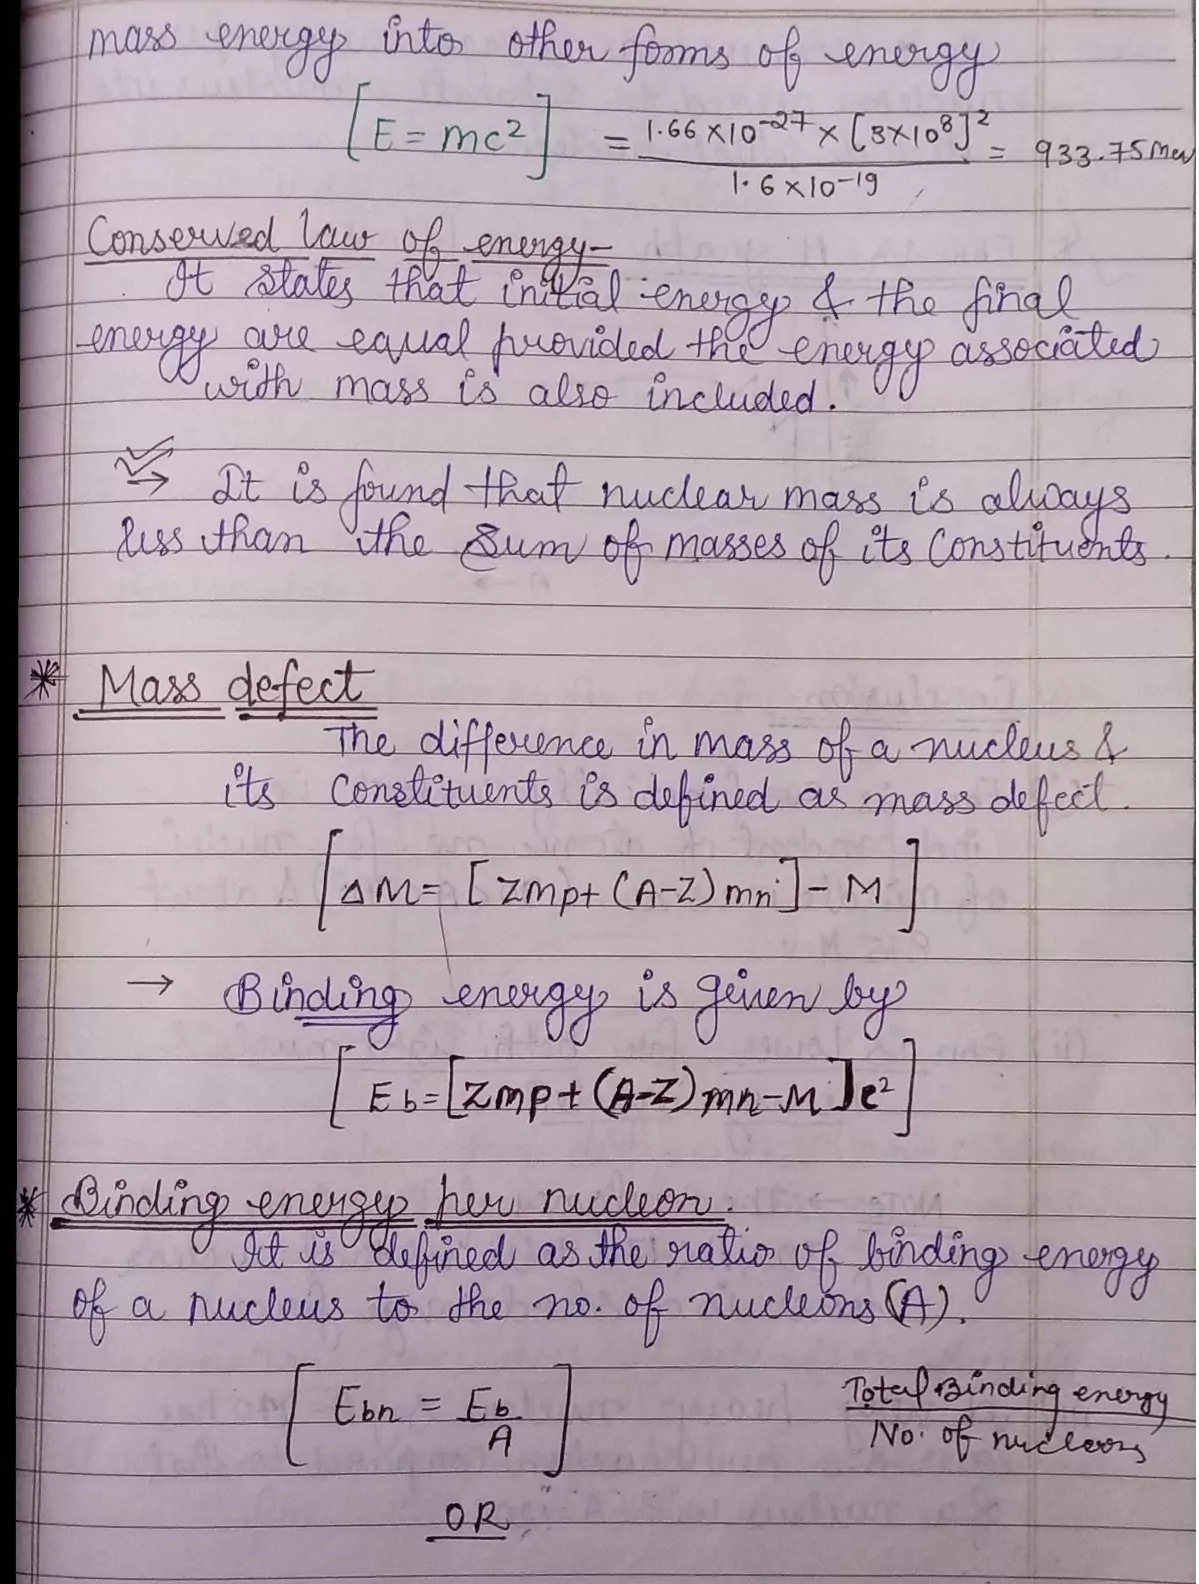 mass energy into other forms of energy
[E = mc²] = 1.66 × 10⁻²⁷ × [3×10⁸]² / 1.6 × 10⁻¹⁹ = 933.75 Mev
Conserved law of energy-
It states that initial energy & the final
energy are equal provided the energy associated
with mass is also included.
→ It is found that nuclear mass is always
less than the sum of masses of its constituents.
* Mass defect
The difference in mass of a nucleus &
its constituents is defined as mass defect.
[ΔM = [Zmp + (A-Z) mn] - M]
→ Binding energy is given by
[Eb = [Zmp + (A-Z) mn - M] c²]
* Binding energy per nucleon.
It is defined as the ratio of binding energy
of a nucleus to the no. of nucleons (A).
[Ebn = Eb / A] Total Binding energy / No. of nucleons
OR